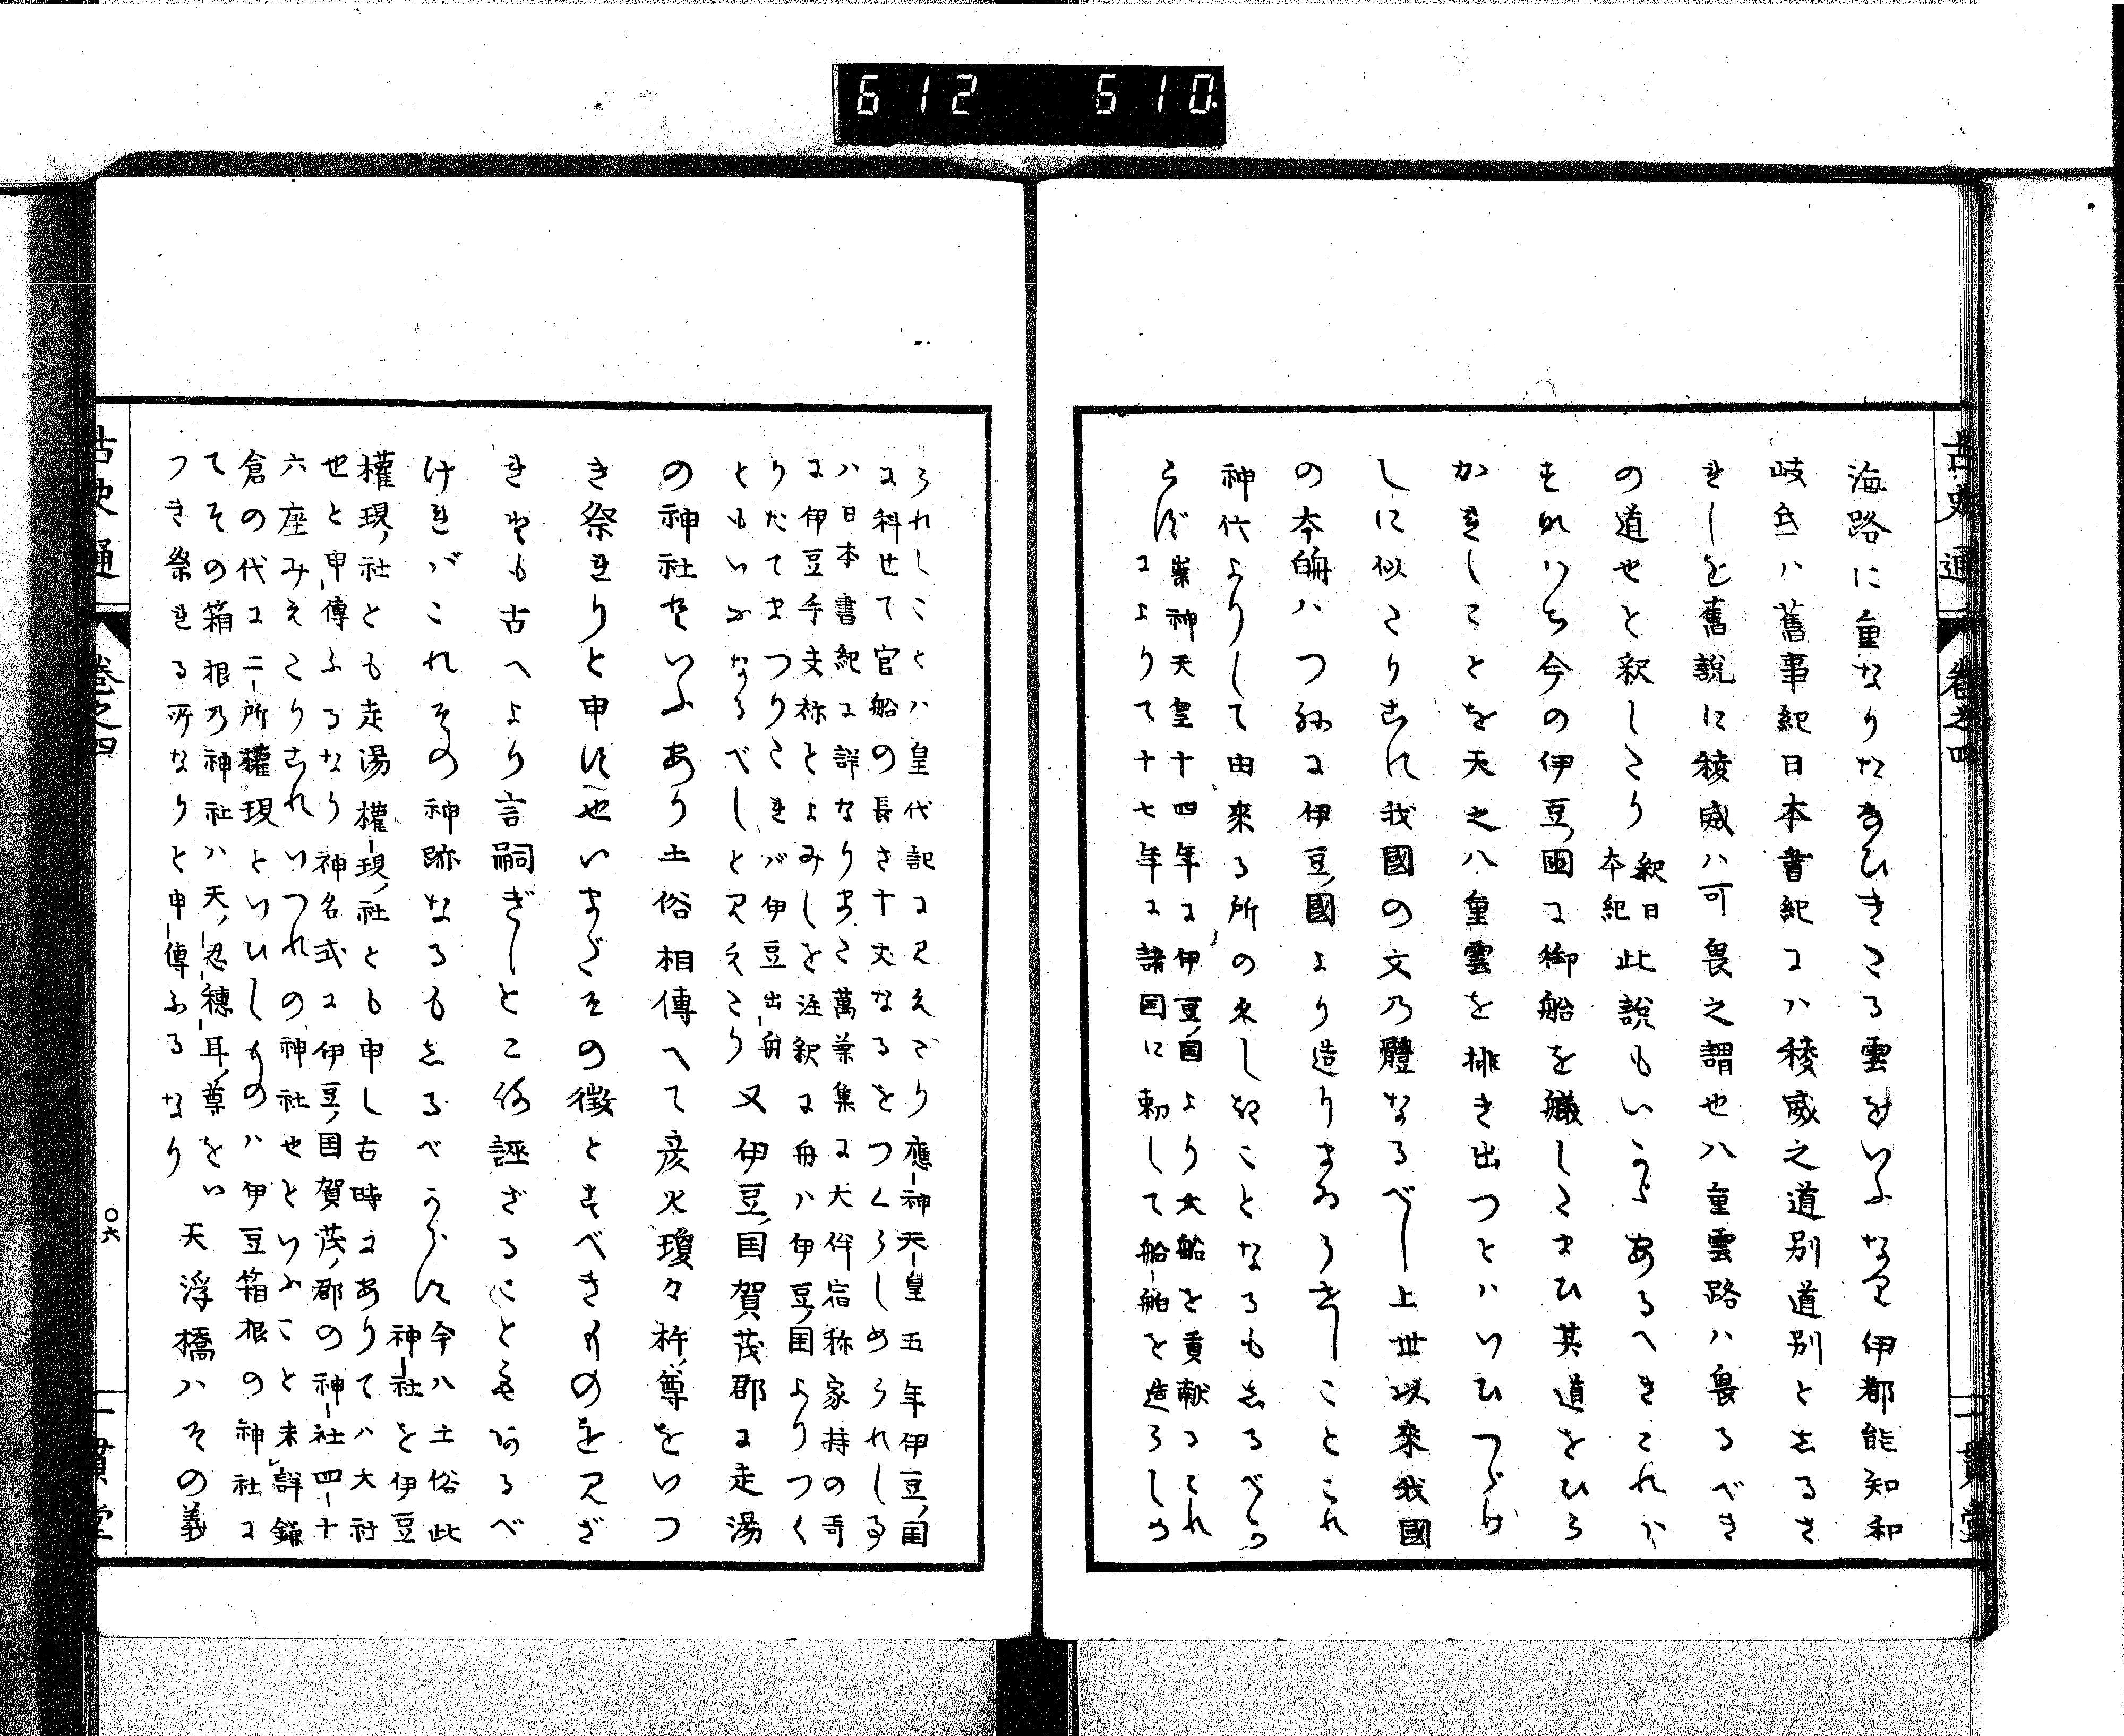 612 610
古史通 卷之四 一貫堂
海路に重なりたなひきたる雲をいふなり伊都能知和
岐弖ハ舊事紀日本書紀にハ稜威之道別道別としるさ
れしを舊説に稜威ハ可畏之謂也八重雲路ハ畏るべき
の道也と釈したり
釈日
本紀
此説もいかゞあるへきこれハ
それハいち今の伊豆ノ國に御船を艤したまひ其道をひら
かれしことを天之八重雲を排き出つとハいひつづけ
しに似たりされ我國の文の體なるべし上世以來我國
の本舶ハつねに伊豆ノ國より造りまゐらせしことこれ
神代よりして由來る所の久しきことなるもしるべか
らず
崇神天皇十四年に伊豆ノ国より大船を貢献るこれ
によりて十七年に諸国に勅して船舶を造らしめ
られしことハ皇代記に見えたり應神天皇五年伊豆ノ国
に科せて官船の長さ十丈なるをつくらしめられし事
ハ日本書紀に詳なりまた萬葉集に大伴宿祢家持の哥
に伊豆手夫祢とよみしを注釈に舟ハ伊豆ノ国よりつく
りたてまつりたれバ伊豆出舟
ともいふなるべしと見えたり
又伊豆ノ国賀茂郡に走湯
の神社といふあり土俗相傳へて彦火瓊々杵ノ尊をいつ
き祭れりと申す也いまだその徴とすべきものを見ざ
れども古へより言嗣ぎしところ誣ざることもあるべ
ければこれその神跡なるもしるべからず
今ハ土俗此
神社を伊豆
權現ノ社とも走湯權現ノ社とも申し古時にありてハ大社
也と申傳ふるなり神名式に伊豆ノ国賀茂ノ郡の神社四十
六座みえたりこれいつれの神社也といふこと未詳鎌
倉の代に二所權現といひしものハ伊豆箱根の神社に
てその箱根乃神社ハ天ノ忍穂耳ノ尊をい
つき祭れる所なりと申傳ふるなり
天浮橋ハその義
古史通 卷之四 〇六 一貫堂